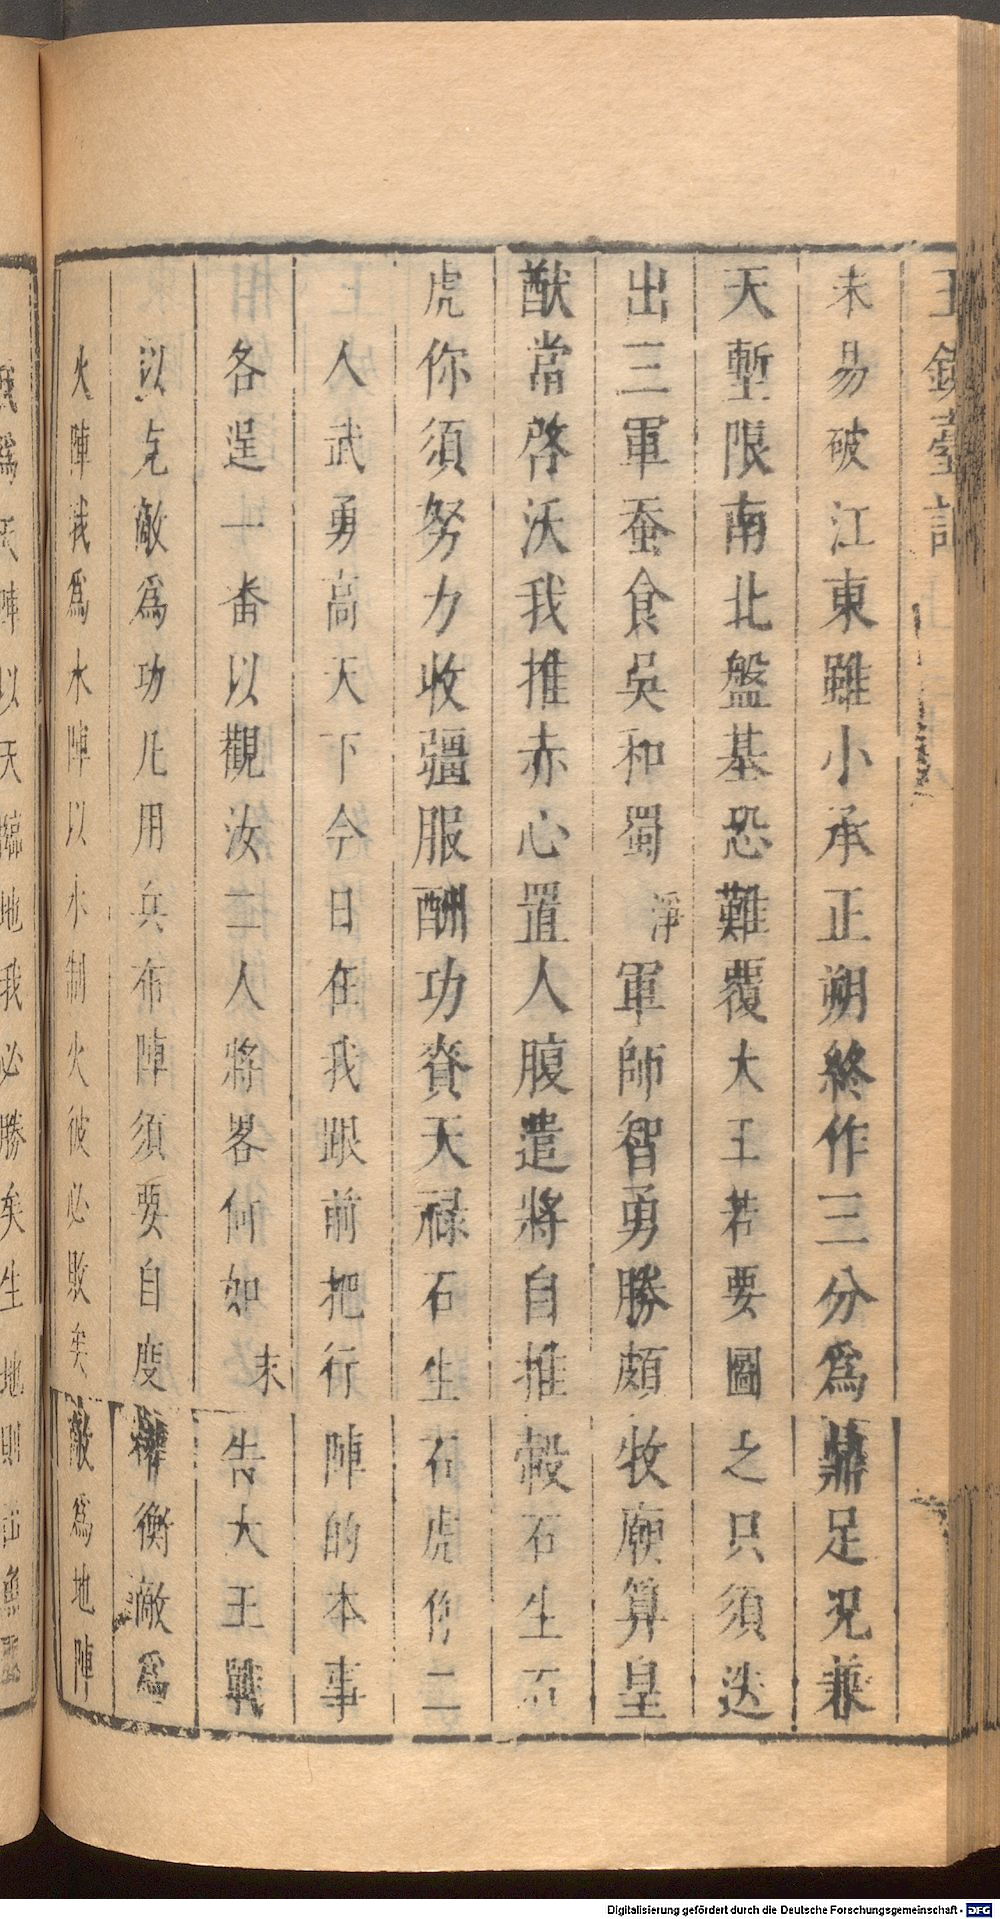 玉鏡臺記
未易破江東雖小承正朔終作三分爲鼎足況兼
天塹限南北盤基恐難覆大王若要圖之只須迭
出三軍蚕食吳和蜀淨軍師智勇勝頗牧廟算皇
猷常啓沃我推赤心置人腹遣將自推轂石生石
虎你須努力收疆服酬功賚天禄石生石虎你二
人武勇高天下今日在我跟前把行陣的本事
各逞一番以觀汝二人將畧何如末告大王戰
以克敵爲功凡用兵布陣須要自度權衡敵爲
火陣我爲水陣以水制火彼必敗矣敵爲地陣
我爲天陣以天臨地我必勝矣生地則
Digitalisierung gefördert durch die Deutsche Forschungsgemeinschaft - DFG